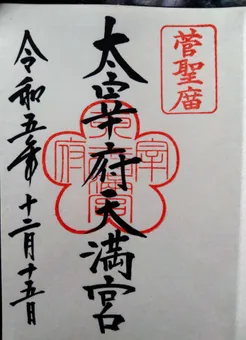 菅聖庿
太宰府天満宮
令和五年十二月十五日